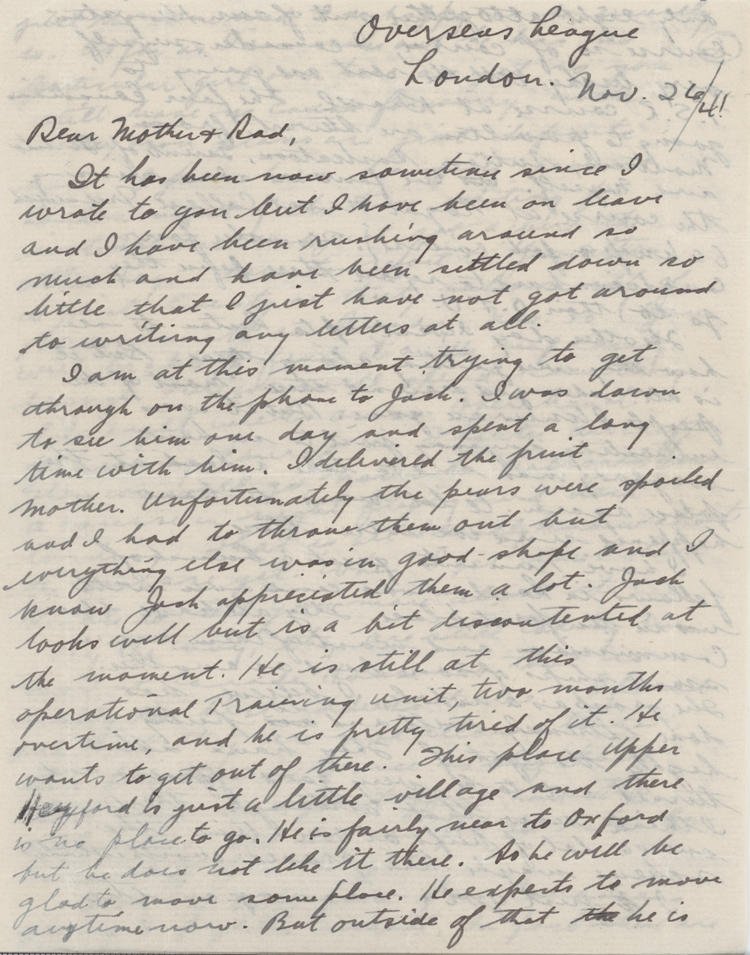 Overseas League
London. Nov. 26/41
Dear Mother & Dad,
It has been now sometime since I
wrote to you but I have been on leave
and I have been rushing around so
much and have been settled down so
little that I just have not got around
to writing any letters at all.
I am at this moment trying to get
through on the phone to Jack. I was down
to see him one day and spent a long
time with him. I delivered the fruit
Mother. Unfortunately the pears were spoiled
and I had to throw them out but
everything else was in good shape and I
know Jack appreciated them a lot. Jack
looks well but is a bit discontented at
the moment. He is still at this
operational Training unit, two months
overtime, and he is pretty tired of it. He
wants to get out of there. This place Upper
Heyford is just a little village and there
is no place to go. He is fairly near to Oxford
but he does not like it there. So he will be
glad to move someplace. He expects to move
anytime now. But outside of that the he is